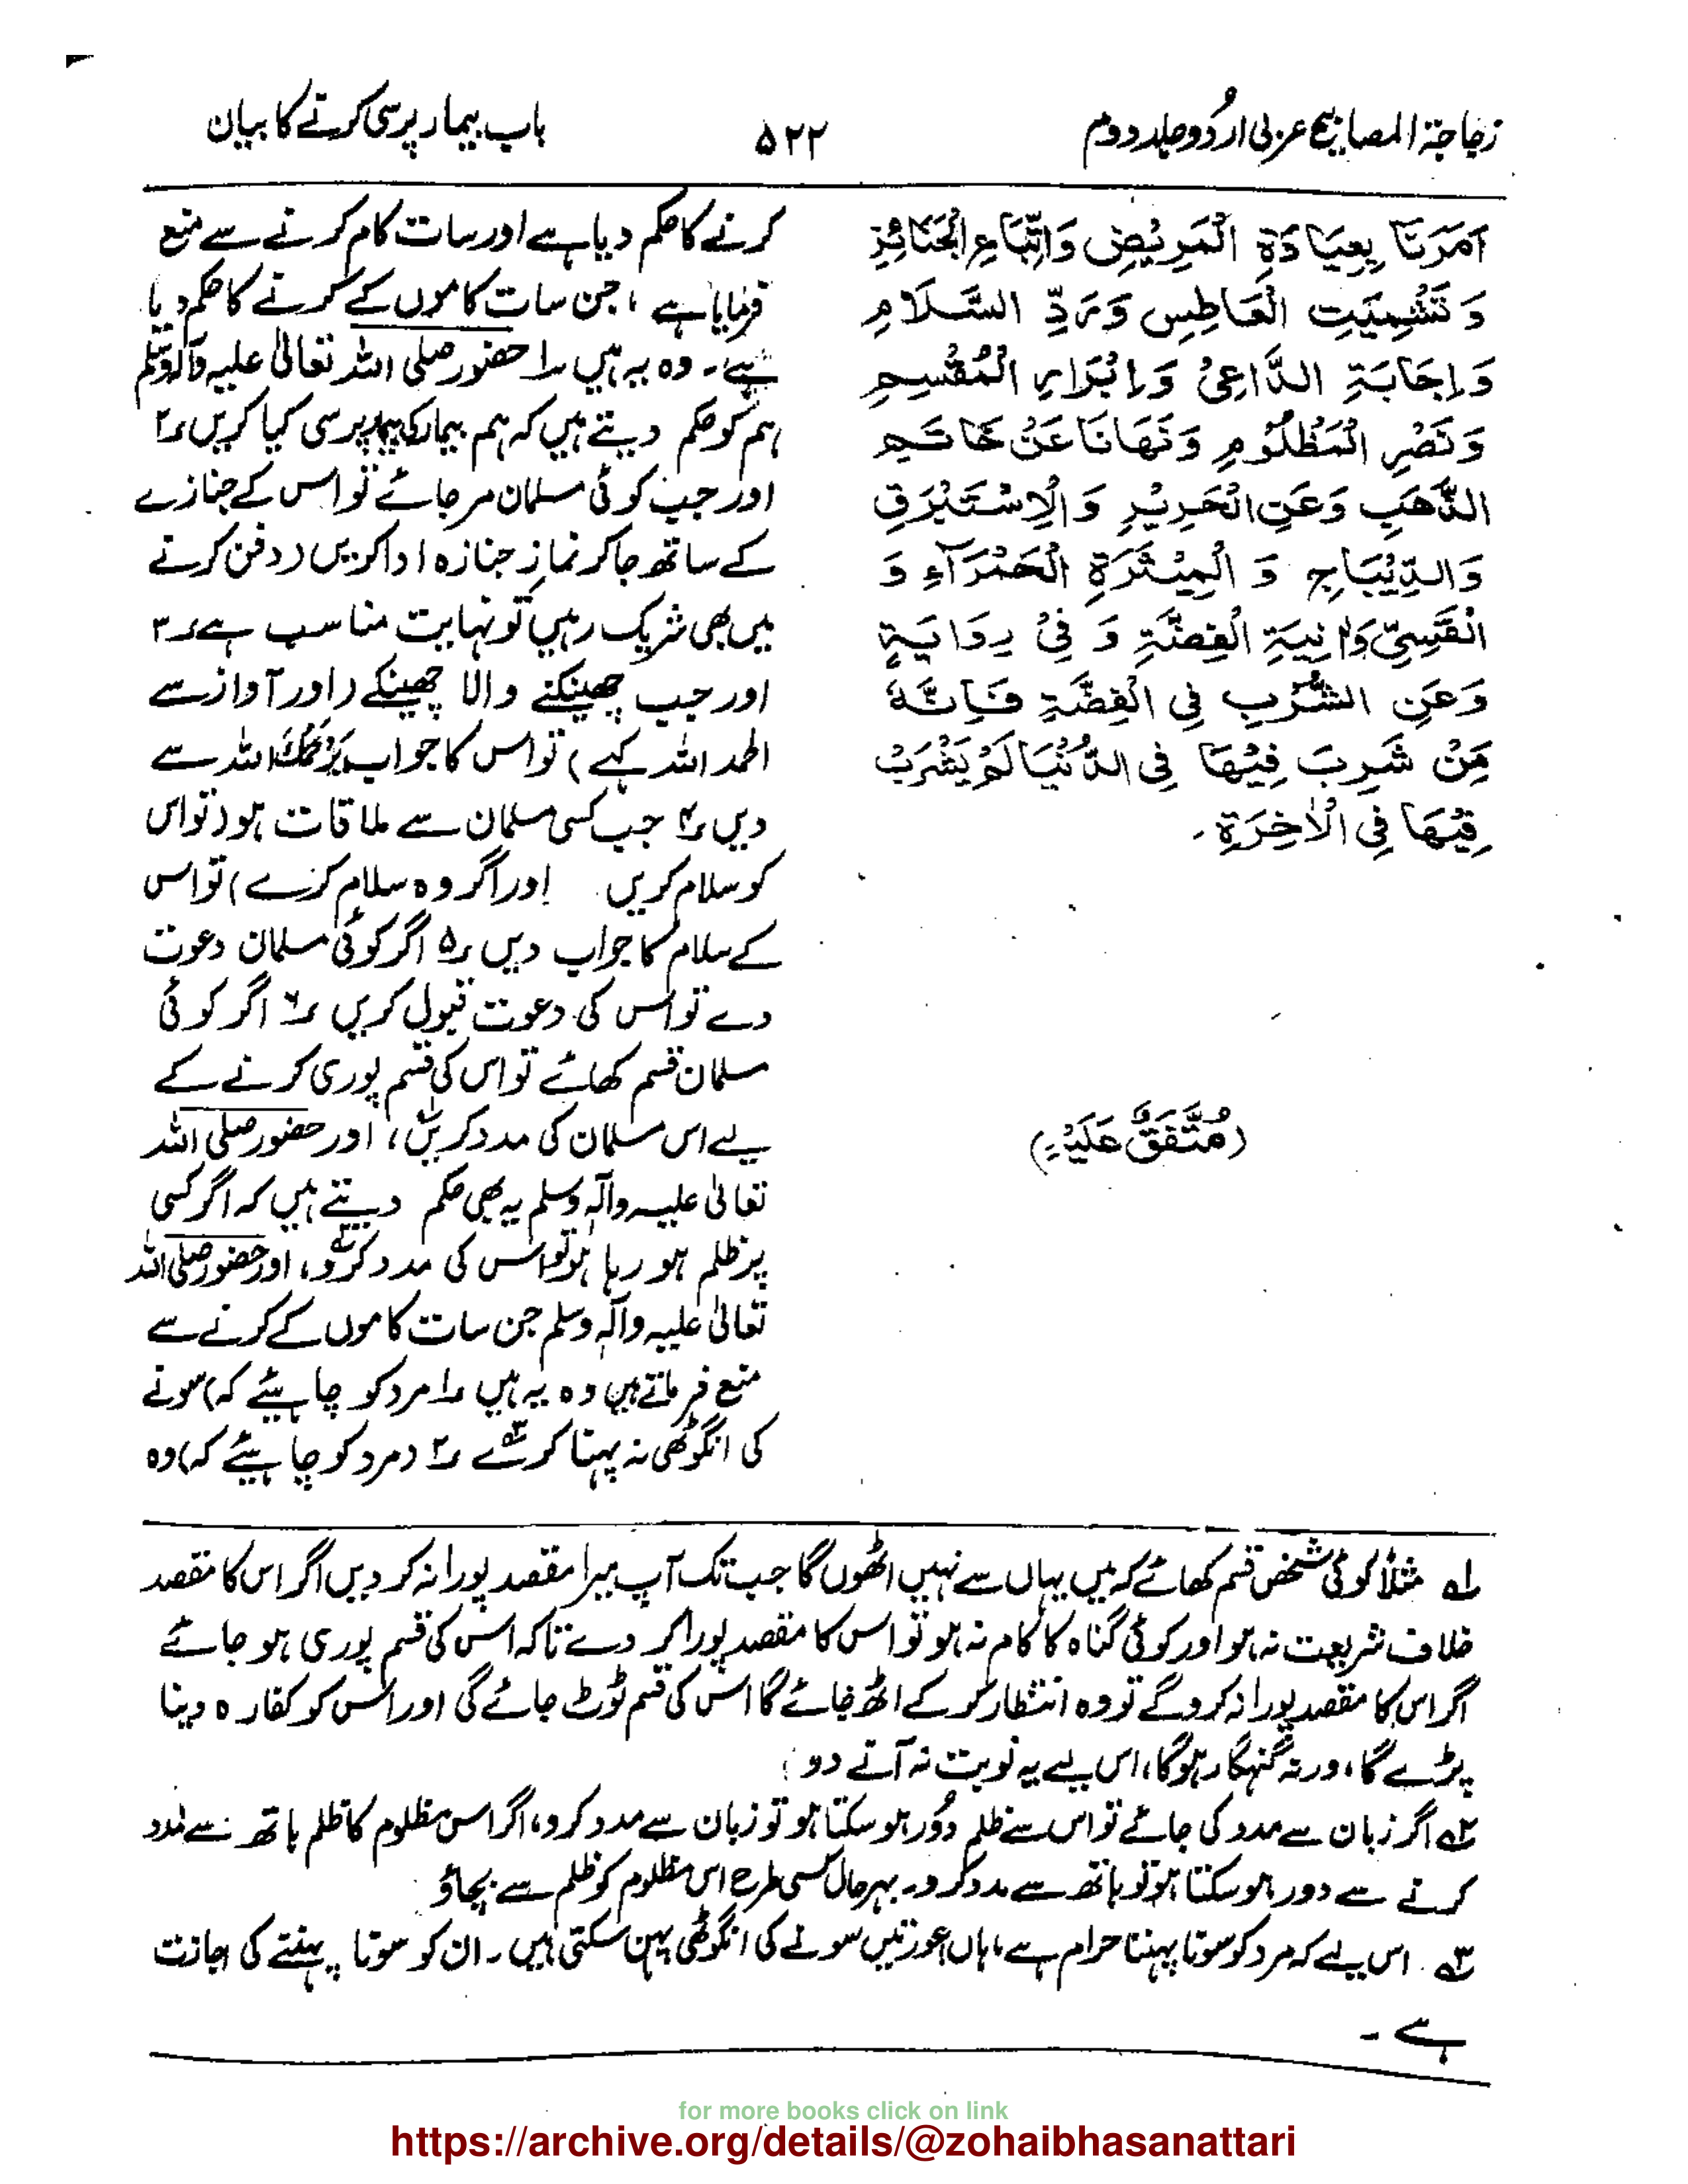 زجاجۃ المصابیح عربی اردُو جلد دوم
۵۲۲
باب بیمار پرسی کرنے کا بیان
اَمَرَنَا بِعِیَادَةِ الْمَرِیْضِ وَاتِّبَاعِ الْجَنَائِزِ
وَ تَشْمِیْتِ الْعَاطِسِ وَرَدِّ السَّلَامِ
وَاِجَابَۃِ الدَّاعِیْ وَاِبْرَارِ الْمُقْسِمِ
وَنَصْرِ الْمَظْلُوْمِ وَنَهَانَا عَنْ خَاتَمِ
الذَّهَبِ وَعَنِ الْحَرِیْرِ وَالْاِسْتَبْرَقِ
وَالدِّیْبَاجِ وَ الْمِیْثَرَةِ الْحَمْرَآءِ وَ
الْقَسِیِّ وَاٰنِیَۃِ الْفِضَّۃِ وَ فِیْ رِوَایَۃٍ
وَعَنِ الشُّرْبِ فِی الْفِضَّۃِ فَاِنَّهٗ
مَنْ شَرِبَ فِیْهَا فِی الدُّنْیَا لَمْ یَشْرَبْ
فِیْهَا فِی الْاٰخِرَةِ۔
(مُتَّفَقٌ عَلَیْهِ)
کرنے کا حکم دیا ہے اور سات کام کرنے سے منع
فرمایا ہے، جن سات کاموں کے کرنے کا حکم دیا
ہے۔ وہ یہ ہیں ۱؎ حضور صلی اللہ تعالیٰ علیہ وآلہ وسلم
ہم کو حکم دیتے ہیں کہ ہم بیمار کی بیمار پرسی کیا کریں ۲؎
اور جب کوئی مسلمان مر جائے تو اس کے جنازے
کے ساتھ جا کر نمازِ جنازہ ادا کریں (دفن کرنے
میں بھی شریک رہیں تو نہایت مناسب ہے ۳؎
اور جب چھینکنے والا چھینکے (اور آواز سے
الحمد اللہ کہے) تو اس کا جواب یَرْحَمُکَ اللہ سے
دیں ۴؎ جب کسی مسلمان سے ملاقات ہو (تو اس
کو سلام کریں اور اگر وہ سلام کرے) تو اس
کے سلام کا جواب دیں ۵؎ اگر کوئی مسلمان دعوت
دے تو اس کی دعوت قبول کریں ۶؎ اگر کوئی
مسلمان قسم کھائے تو اس کی قسم پوری کرنے کے
لیے اس مسلمان کی مدد کریں ۱؎، اور حضور صلی اللہ
تعالیٰ علیہ وآلہٖ وسلم یہ بھی حکم دیتے ہیں کہ اگر کسی
پر ظلم ہو رہا ہو تو اس کی مدد کرو ۲؎، اور حضور صلی اللہ
تعالیٰ علیہ وآلہٖ وسلم جن سات کاموں کے کرنے سے
منع فرماتے ہیں وہ یہ ہیں ۱؎ مرد کو چاہیئے کہ) سونے
کی انگوٹھی نہ پہنا کرے ۳؎ ۲؎ (مرد کو چاہیئے کہ) وہ
۱؎ مثلاً کوئی شخص قسم کھائے کہ میں یہاں سے نہیں اٹھوں گا جب تک آپ میرا مقصد پورا نہ کر دیں اگر اس کا مقصد
خلاف شریعت نہ ہو اور کوئی گناہ کا کام نہ ہو تو اس کا مقصد پورا کر دے تاکہ اس کی قسم پوری ہو جائے
اگر اس کا مقصد پورا نہ کرو گے تو وہ انتظار کر کے اٹھ جائے گا اس کی قسم ٹوٹ جائے گی اور اس کو کفارہ دینا
پڑے گا، ورنہ گنہگار ہوگا، اس لیے یہ نوبت نہ آنے دو؛
۲؎ اگر زبان سے مدد کی جائے تو اس سے ظلم دُور ہو سکتا ہو تو زبان سے مدد کرو، اگر اس مظلوم کا ظلم ہاتھ سے مدد
کرنے سے دور ہو سکتا ہو تو ہاتھ سے مدد کرو۔ بہرحال کسی طرح اس مظلوم کو ظلم سے بچاؤ
۳؎ اس لیے کہ مرد کو سونا پہننا حرام ہے، ہاں عورتیں سونے کی انگوٹھی پہن سکتی ہیں۔ ان کو سونا پہننے کی اجازت
ہے۔
for more books click on link
https://archive.org/details/@zohaibhasanattari